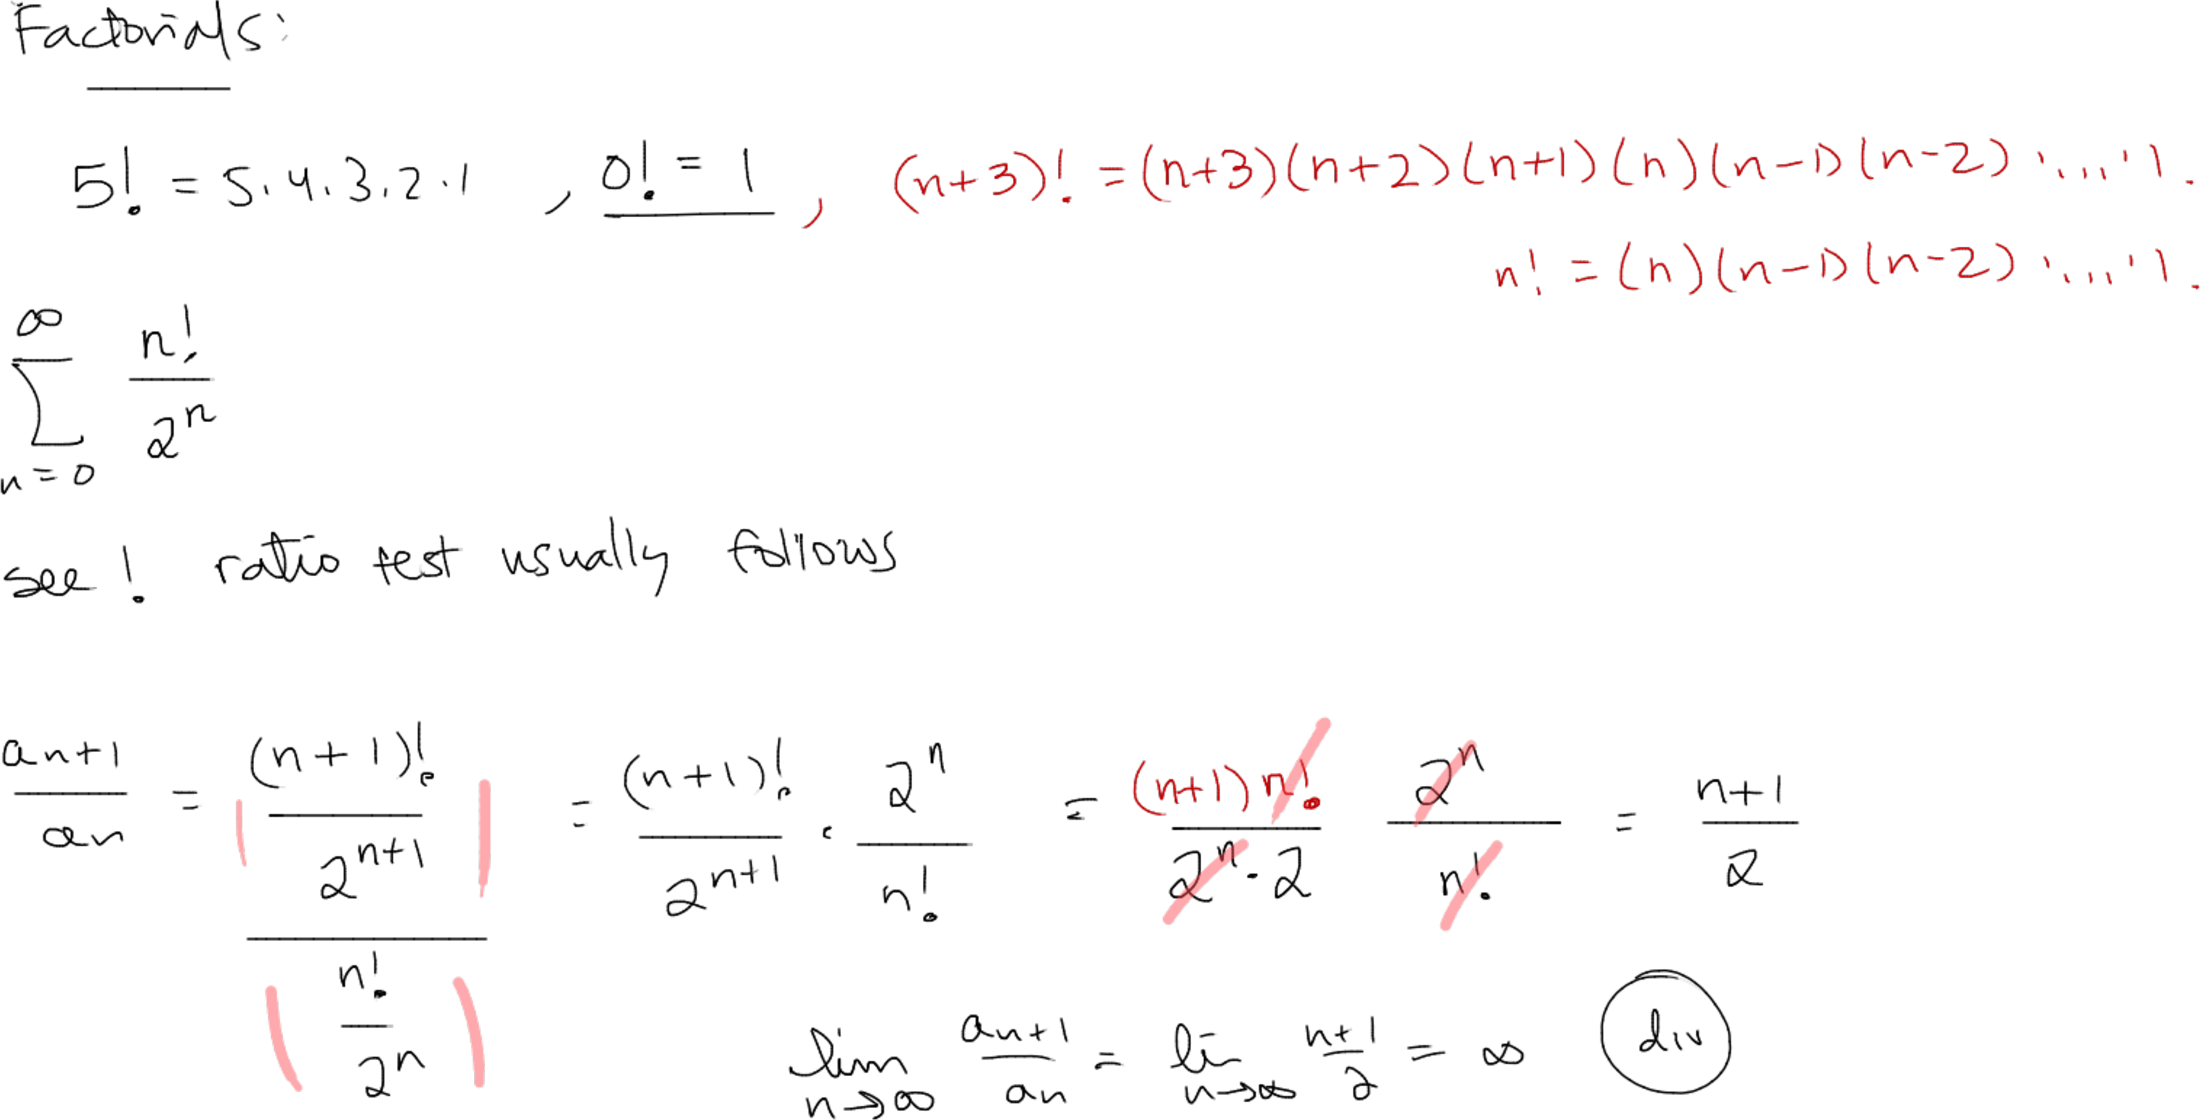 Factorials:
5! = 5.4.3.2.1 , 0! = 1 , (n+3)! = (n+3)(n+2)(n+1)(n)(n-1)(n-2)·...·1.
n! = (n)(n-1)(n-2)·...·1.
∞ ∑ n=0 n!/2^n
see ! ratio test usually follows
an+1/an = ((n+1)!/2^(n+1))/(n!/2^n) = (n+1)!/2^(n+1) · 2^n/n! = (n+1)n!/(2^n·2) 2^n/n! = n+1/2
lim n→∞ an+1/an = li n→∞ n+1/2 = ∞ div